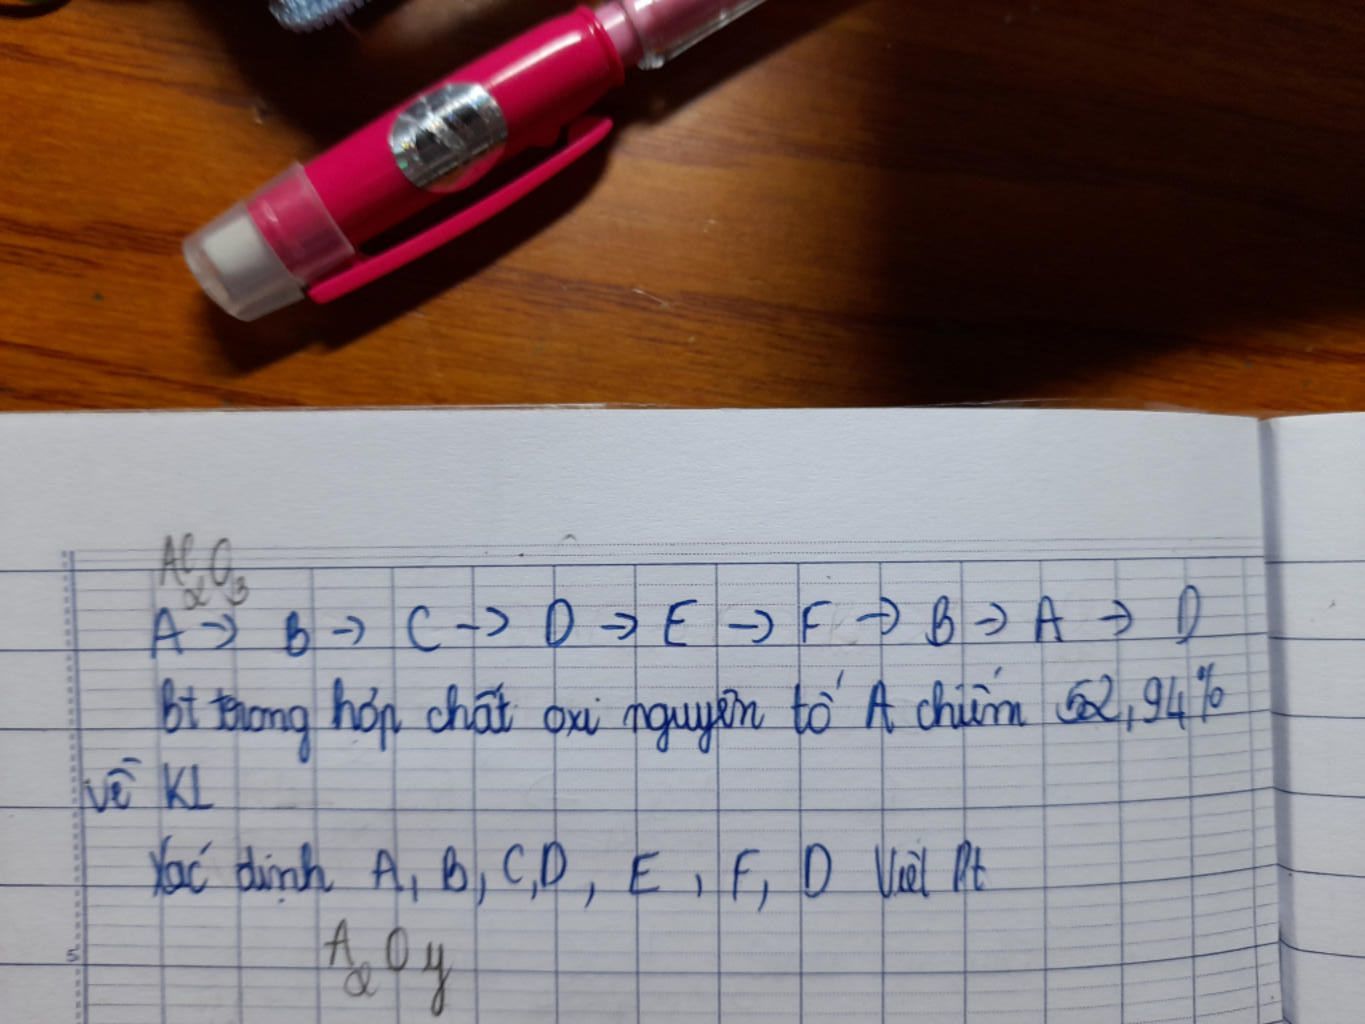 Al2O3
A → B → C → D → E → F → B → A → D
Bt trong hợp chất oxi nguyên tố A chiếm 52,94%
về KL
Xác định A, B, C, D, E, F, D Viết Pt
A2Oy
5